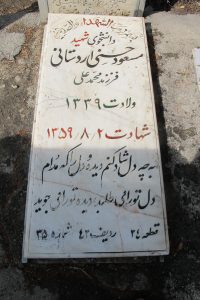 دانشجوی شهید
مسعود حسنی اردستانی
فرزند محمدعلی
ولادت ۱۳۳۹
شهادت ۱۳۵۹/۸/۲
به چه دل شاد کنم دیده و دل را که مدام
دل تو را می‌طلبد دیده تو را می‌جوید
قطعه ۲۴ ردیف ۴۲ شماره ۳۵